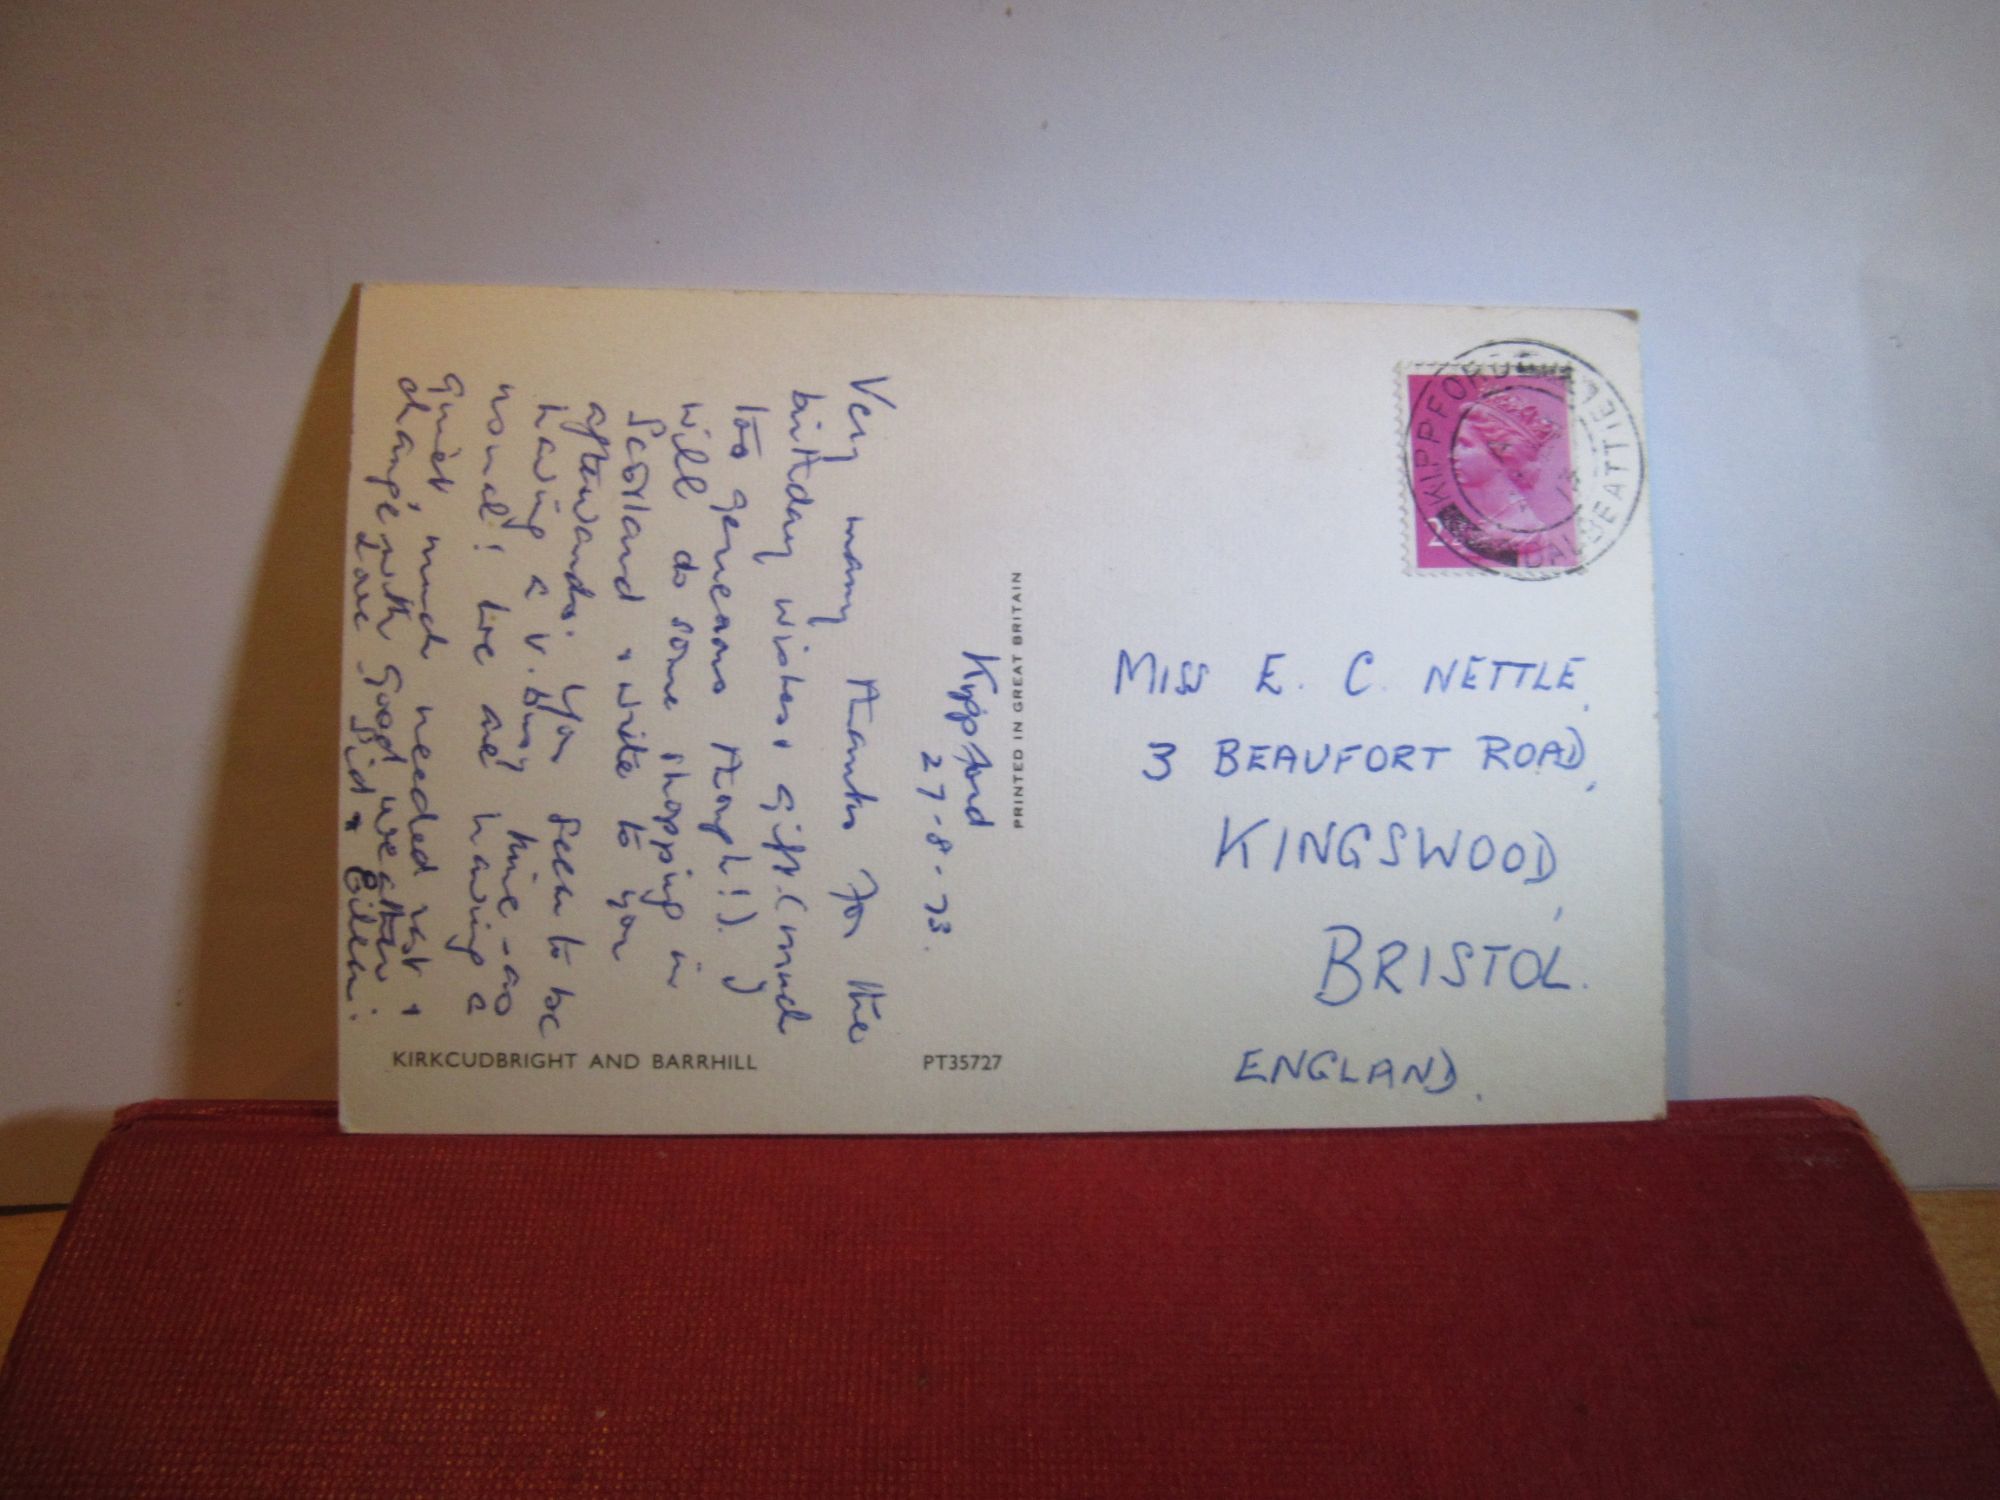 Kippford
27-8-73.
Very many thanks for the
birthday wishes & gift (much
too generous though!). I
will do some shopping in
Scotland & write to you
afterwards. You seem to be
having a v. busy time - as
usual! We are having a
quiet, much needed rest &
change, with good weather.
Love Sid & Eileen.
PRINTED IN GREAT BRITAIN
KIRKCUDBRIGHT AND BARRHILL
PT35727
KIPPFORD
DALBEATTIE
MISS E. C. NETTLE,
3 BEAUFORT ROAD,
KINGSWOOD,
BRISTOL.
ENGLAND.